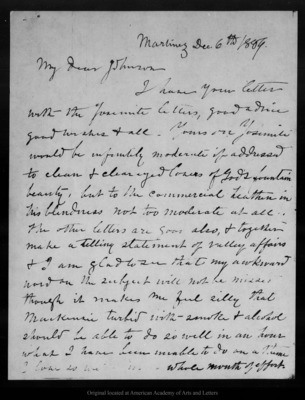 Martinez Dec 6th 1889.
My Dear Johnson
I have your letter
with the Yosemite letters, good advice
good wishes & all. Yours on Yosemite
would be infinitely moderate if addressed
to clean & clear eyed lovers of God's
beauty, but to the commercial heathen in
his blindness not too moderate at all.
The other letters are good also, & together
make a telling statement of valley affairs
& I am glad to see that my awkward
word on the subject will not be missed
though it makes me feel silly that
Mackenzie turbid with smoke & alcohol
should be able to do so well in an hour
what I have been unable to do on a
whole month of effort.
Original located at American Academy of Arts and Letters